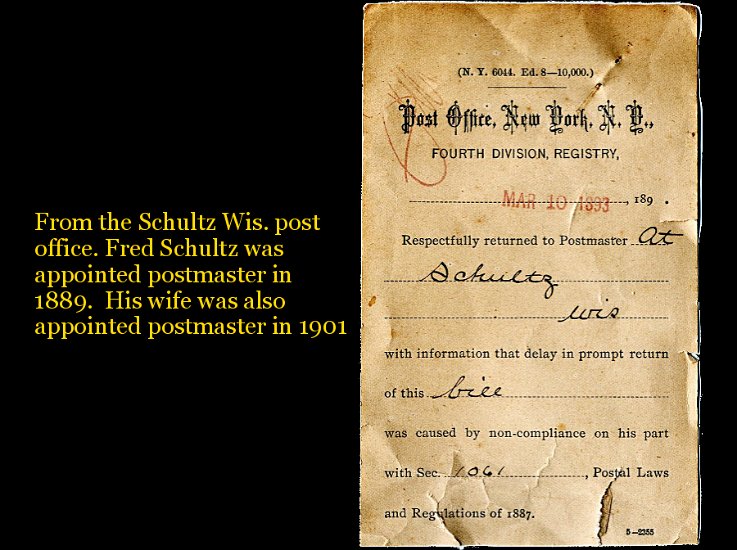 From the Schultz Wis. post
office. Fred Schultz was
appointed postmaster in
1889. His wife was also
appointed postmaster in 1901
(N. Y. 6044. Ed. 8—10,000.)
Post Office, New York, N. Y.,
FOURTH DIVISION, REGISTRY,
MAR 10 1893, 189 .
Respectfully returned to Postmaster At
Schultz
Wis
with information that delay in prompt return
of this bill
was caused by non-compliance on his part
with Sec. 1061, Postal Laws
and Regulations of 1887.
5—2355